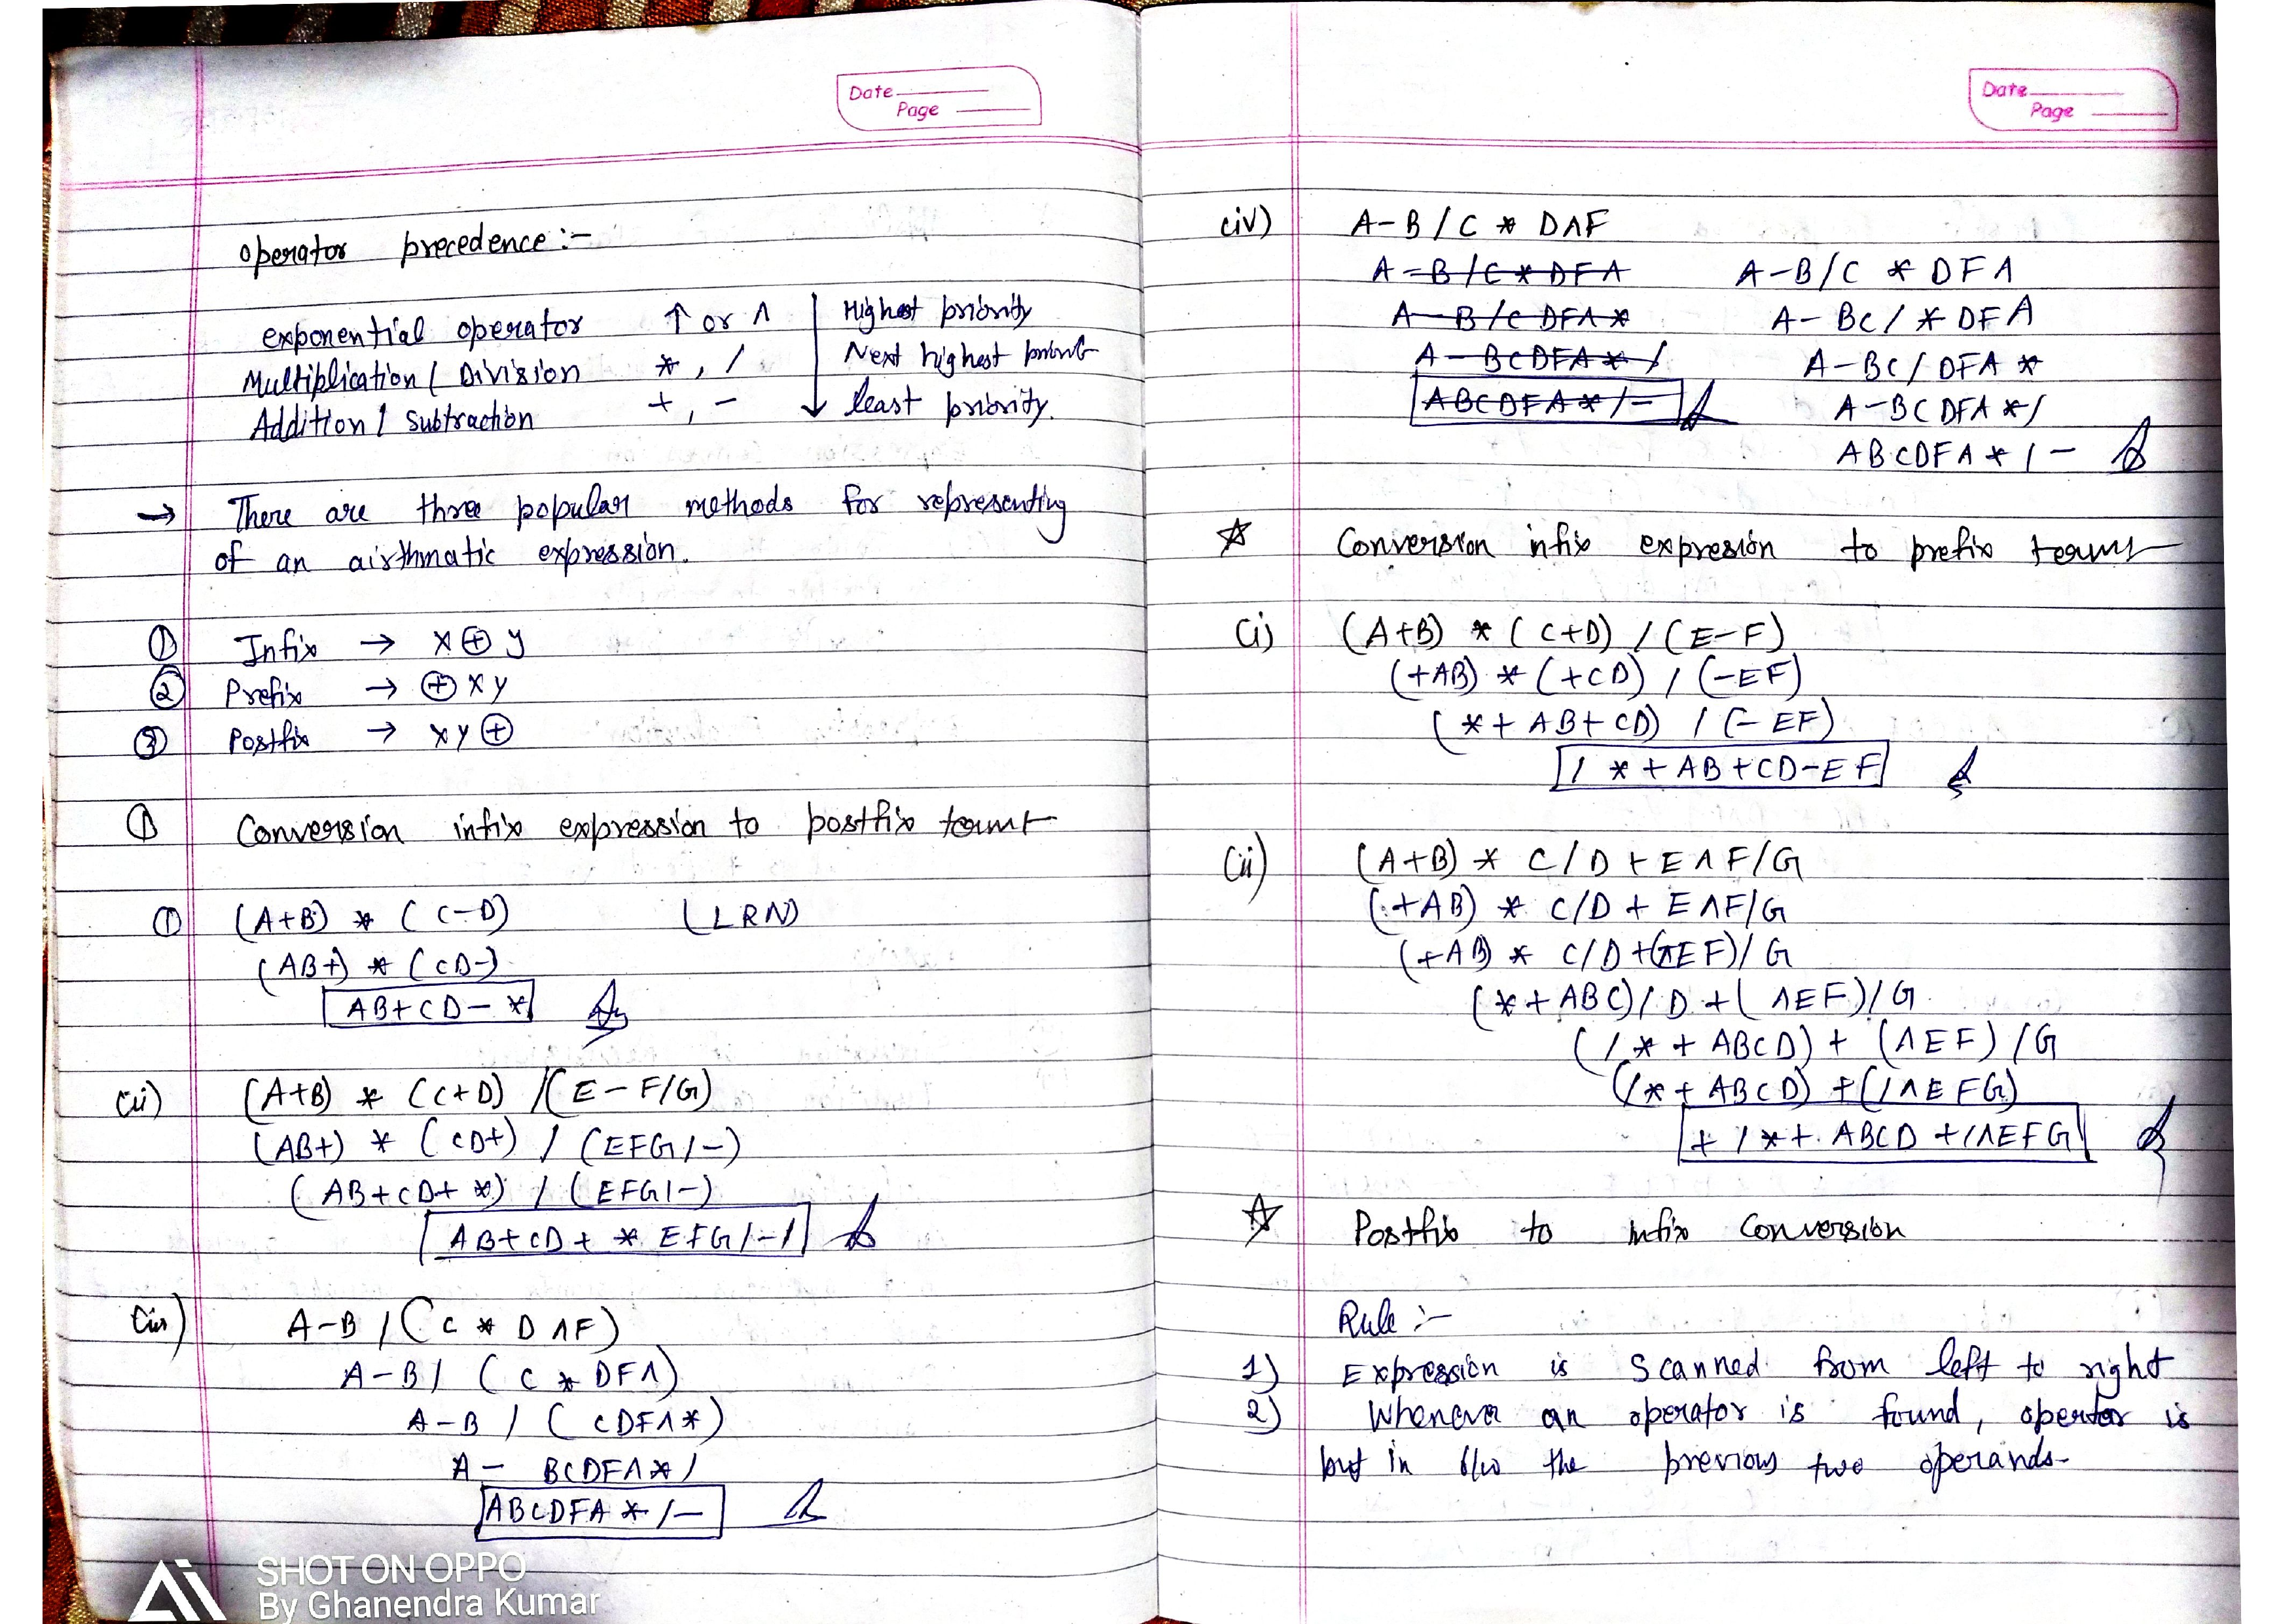 Date
Page
operator precedence :-
exponential operator ↑ or ∧ Highest priority
Multiplication / Division *, / Next highest priorit
Addition / subtraction +, - least priority.
→ There are three popular methods for representing
of an airthmatic expression.
① Infix → x ⊕ y
② Prefix → ⊕ x y
③ Postfix → x y ⊕
① Conversion infix expression to postfix
① (A+B) * (C-D) (LRN)
(AB+) * (CD-)
AB+CD-*
(ii) (A+B) * (C+D) / (E - F/G)
(AB+) * (CD+) / (EFG/-)
(AB+CD+*) / (EFG/-)
AB+CD+*EFG/-/
(iii) A-B / (C * D∧F)
A-B / (C * DF∧)
A-B / (CDF∧*)
A- BCDF∧*/
ABCDF∧*/-
SHOT ON OPPO
By Ghanendra Kumar
Date
Page
(iv) A-B / C * D∧F
A-B/C*DF∧ A-B/C * DF∧
A-B/CDF∧* A-BC/ * DF∧
A-BCDF∧*/ A-BC/ DF∧ *
ABCDF∧*/- A-BCDF∧*/
ABCDF∧*/-
☆ Conversion infix expresion to prefix
(i) (A+B) * (C+D) / (E-F)
(+AB) * (+CD) / (-EF)
(*+AB+CD) / (-EF)
/*+AB+CD-EF
(ii) (A+B) * C/D + E∧F/G
(+AB) * C/D + E∧F/G
(+AB) * C/D + (∧EF)/G
(*+ABC)/D + (∧EF)/G
(/*+ABCD) + (∧EF)/G
(/*+ABCD) + (/∧EFG)
+/*+ABCD+/∧EFG
☆ Postfix to infix conversion
Rule :-
1) Expression is scanned from left to right
2) Whenever an operator is found, opertor is
put in b/w the previous two operands.